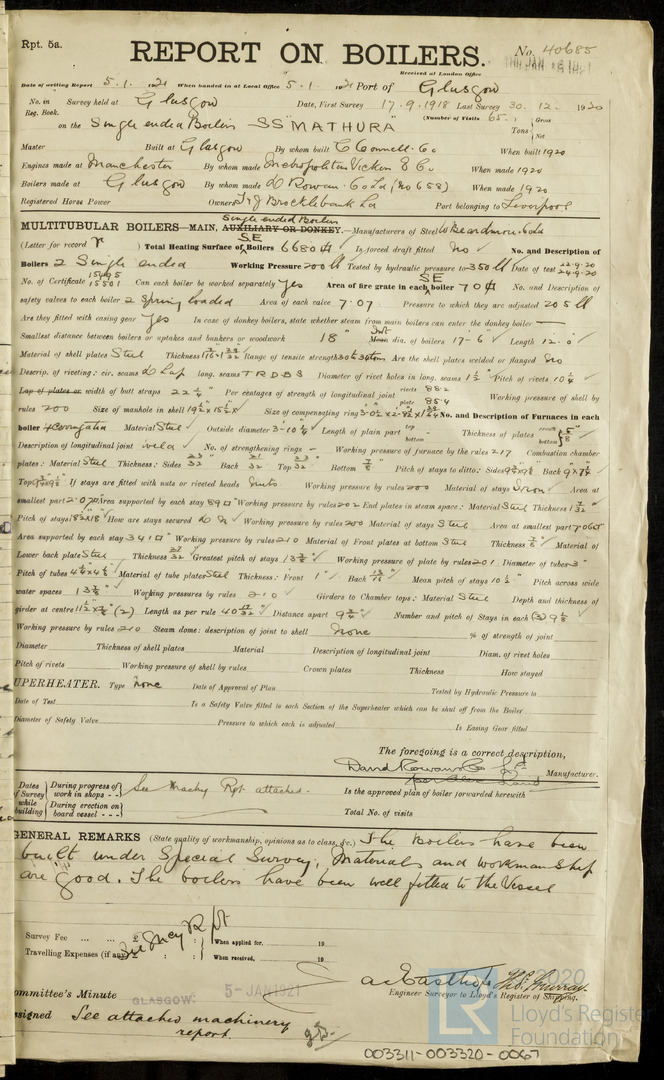 Rpt. 5a.
REPORT ON BOILERS.
No. 40685
Received at London Office
Date of writing Report 5.1.1921 When handed in at Local Office 5.1.1921 Port of Glasgow
No. in Survey held at Glasgow Date, First Survey 17.9.1918 Last Survey 30.12.1920
Reg. Book. (Number of Visits 65.) Gross
on the Single ended Boilers SS "MATHURA" Tons Net
Master Built at Glasgow By whom built C Connell & Co When built 1920
Engines made at Manchester By whom made Metropolitan Vickers E Co When made 1920
Boilers made at Glasgow By whom made D Rowan & Co Ld (No 658) When made 1920
Registered Horse Power Owners T & J Brocklebank Ld Port belonging to Liverpool
Single ended Boilers
MULTITUBULAR BOILERS—MAIN, AUXILIARY OR DONKEY.—Manufacturers of Steel W Beardmore & Co Ld
(Letter for record r) Total Heating Surface of SE Boilers 6680 Is forced draft fitted No No. and Description of
Boilers 2 Single ended Working Pressure 200 lb Tested by hydraulic pressure to 350 lb Date of test 22.9.20 24.9.20
No. of Certificate 15495 15501 Can each boiler be worked separately Yes Area of fire grate in each SE boiler 70 No. and Description of
safety valves to each boiler 2 Spring loaded Area of each valve 7.07 Pressure to which they are adjusted 205 lb
Are they fitted with easing gear Yes In case of donkey boilers, state whether steam from main boilers can enter the donkey boiler —
Smallest distance between boilers or uptakes and bunkers or woodwork 18" Int Mean dia. of boilers 17-6" Length 12-0"
Material of shell plates Steel Thickness Range of tensile strength Are the shell plates welded or flanged No
Descrip. of riveting: cir. seams D Lap long. seams TRDBS Diameter of rivet holes in long. seams 1½" Pitch of rivets 10¼"
Lap of plates or width of butt straps 22¼" Per centages of strength of longitudinal joint rivets 88.2 plate 85.4 Working pressure of shell by
rules 200 Size of manhole in shell 19½" x 15½" Size of compensating ring No. and Description of Furnaces in each
boiler 4 Corrugated Material Steel Outside diameter 3-10¼" Length of plain part top bottom Thickness of plates crown bottom 5/8"
Description of longitudinal joint weld No. of strengthening rings — Working pressure of furnace by the rules 217 Combustion chamber
plates: Material Steel Thickness: Sides 23/32 Back 21/32 Top 23/32 Bottom 7/8" Pitch of stays to ditto: Sides Back
Top If stays are fitted with nuts or riveted heads Nuts Working pressure by rules 200 Material of stays Iron Area at
smallest part 2.07 Area supported by each stay 89 Working pressure by rules 202 End plates in steam space: Material Steel Thickness
Pitch of stays How are stays secured D N Working pressure by rules 200 Material of stays Steel Area at smallest part
Area supported by each stay 341 Working pressure by rules 210 Material of Front plates at bottom Steel Thickness 7/8" Material of
Lower back plate Steel Thickness Greatest pitch of stays 13¾" Working pressure of plate by rules 201 Diameter of tubes 3"
Pitch of tubes Material of tube plates Steel Thickness: Front 1" Back 13/16" Mean pitch of stays 10½" Pitch across wide
water spaces 13¾" Working pressures by rules 210 Girders to Chamber tops: Material Steel Depth and thickness of
girder at centre (2) Length as per rule Distance apart 9¾" Number and pitch of Stays in each (3) 9⅛"
Working pressure by rules 210 Steam dome: description of joint to shell None % of strength of joint
Diameter Thickness of shell plates Material Description of longitudinal joint Diam. of rivet holes
Pitch of rivets Working pressure of shell by rules Crown plates Thickness How stayed
UPERHEATER. Type None Date of Approval of Plan Tested by Hydraulic Pressure to
Date of Test Is a Safety Valve fitted to each Section of the Superheater which can be shut off from the Boiler
Diameter of Safety Valve Pressure to which each is adjusted Is Easing Gear fitted
The foregoing is a correct description,
David Rowan & Co Manufacturer.
Dates of Survey while building During progress of work in shops - - See Machy Rpt attached. Is the approved plan of boiler forwarded herewith
During erection on board vessel - - - Total No. of visits
GENERAL REMARKS (State quality of workmanship, opinions as to class, &c.) The Boilers have been
built under Special Survey, Materials and workmanship
are good. The boilers have been well fitted to the Vessel
Survey Fee ... ... See Mcy Rpt When applied for, 19
Travelling Expenses (if any) When received, 19
Engineer Surveyor to Lloyd's Register of Shipping.
ommittee's Minute GLASGOW: 5-JAN 1921
signed See attached machinery
report
© 2020
LR Lloyd's Register
Foundation
003311-003320-0067